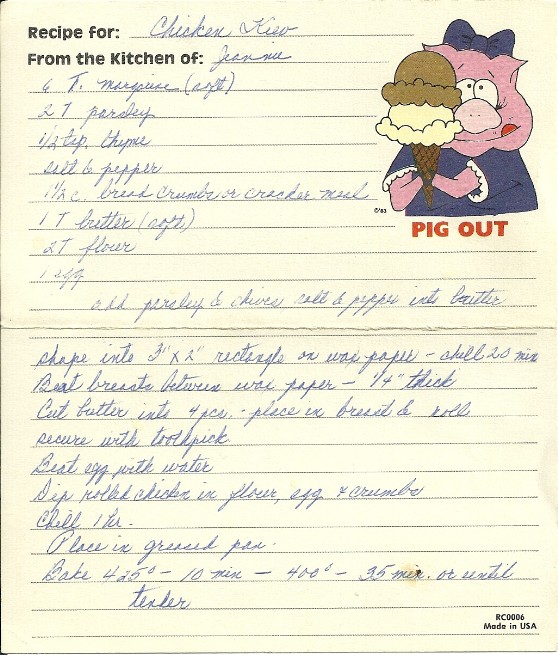 Recipe for: Chicken Kiev
From the Kitchen of: Jeannie
6 T. margarine (soft)
2 T parsley
1/2 tsp. thyme
salt & pepper
1 1/2 c. bread crumbs or cracker meal
1 T butter (soft)
2T flour
1 egg
add parsley & chives salt & pepper into butter
shape into 3" x 2" rectangle on wax paper - chill 20 min
Beat breasts between wax paper - 1/4" thick
Cut butter into 4 pcs. - place in breast & roll
secure with toothpick
Beat egg with water
Dip rolled chicken in flour, egg & crumbs
Chill 1 hr.
Place in greased pan.
Bake 425° - 10 min - 400° - 35 min. or until
tender
©'83
PIG OUT
RC0006
Made in USA